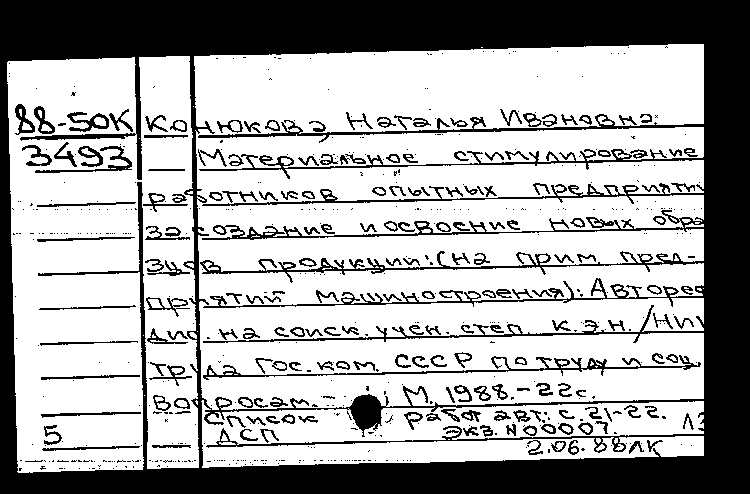 88-50К Конюкова, Наталья Ивановна.
3493 Материальное стимулирование
работников опытных предприяти
за создание и освоение новых обра
зцов продукции: (на прим. пред-
приятий машиностроения): Авторе
дис. на соиск. учен. степ. к.э.н. / НИИ
труда Гос. ком. СССР по труду и соц.
вопросам. - М., 1988. - 22 с.
Список работ авт.: с. 21-22.
5 ДСП Экз. N 00007.
2.06.88 ЛК